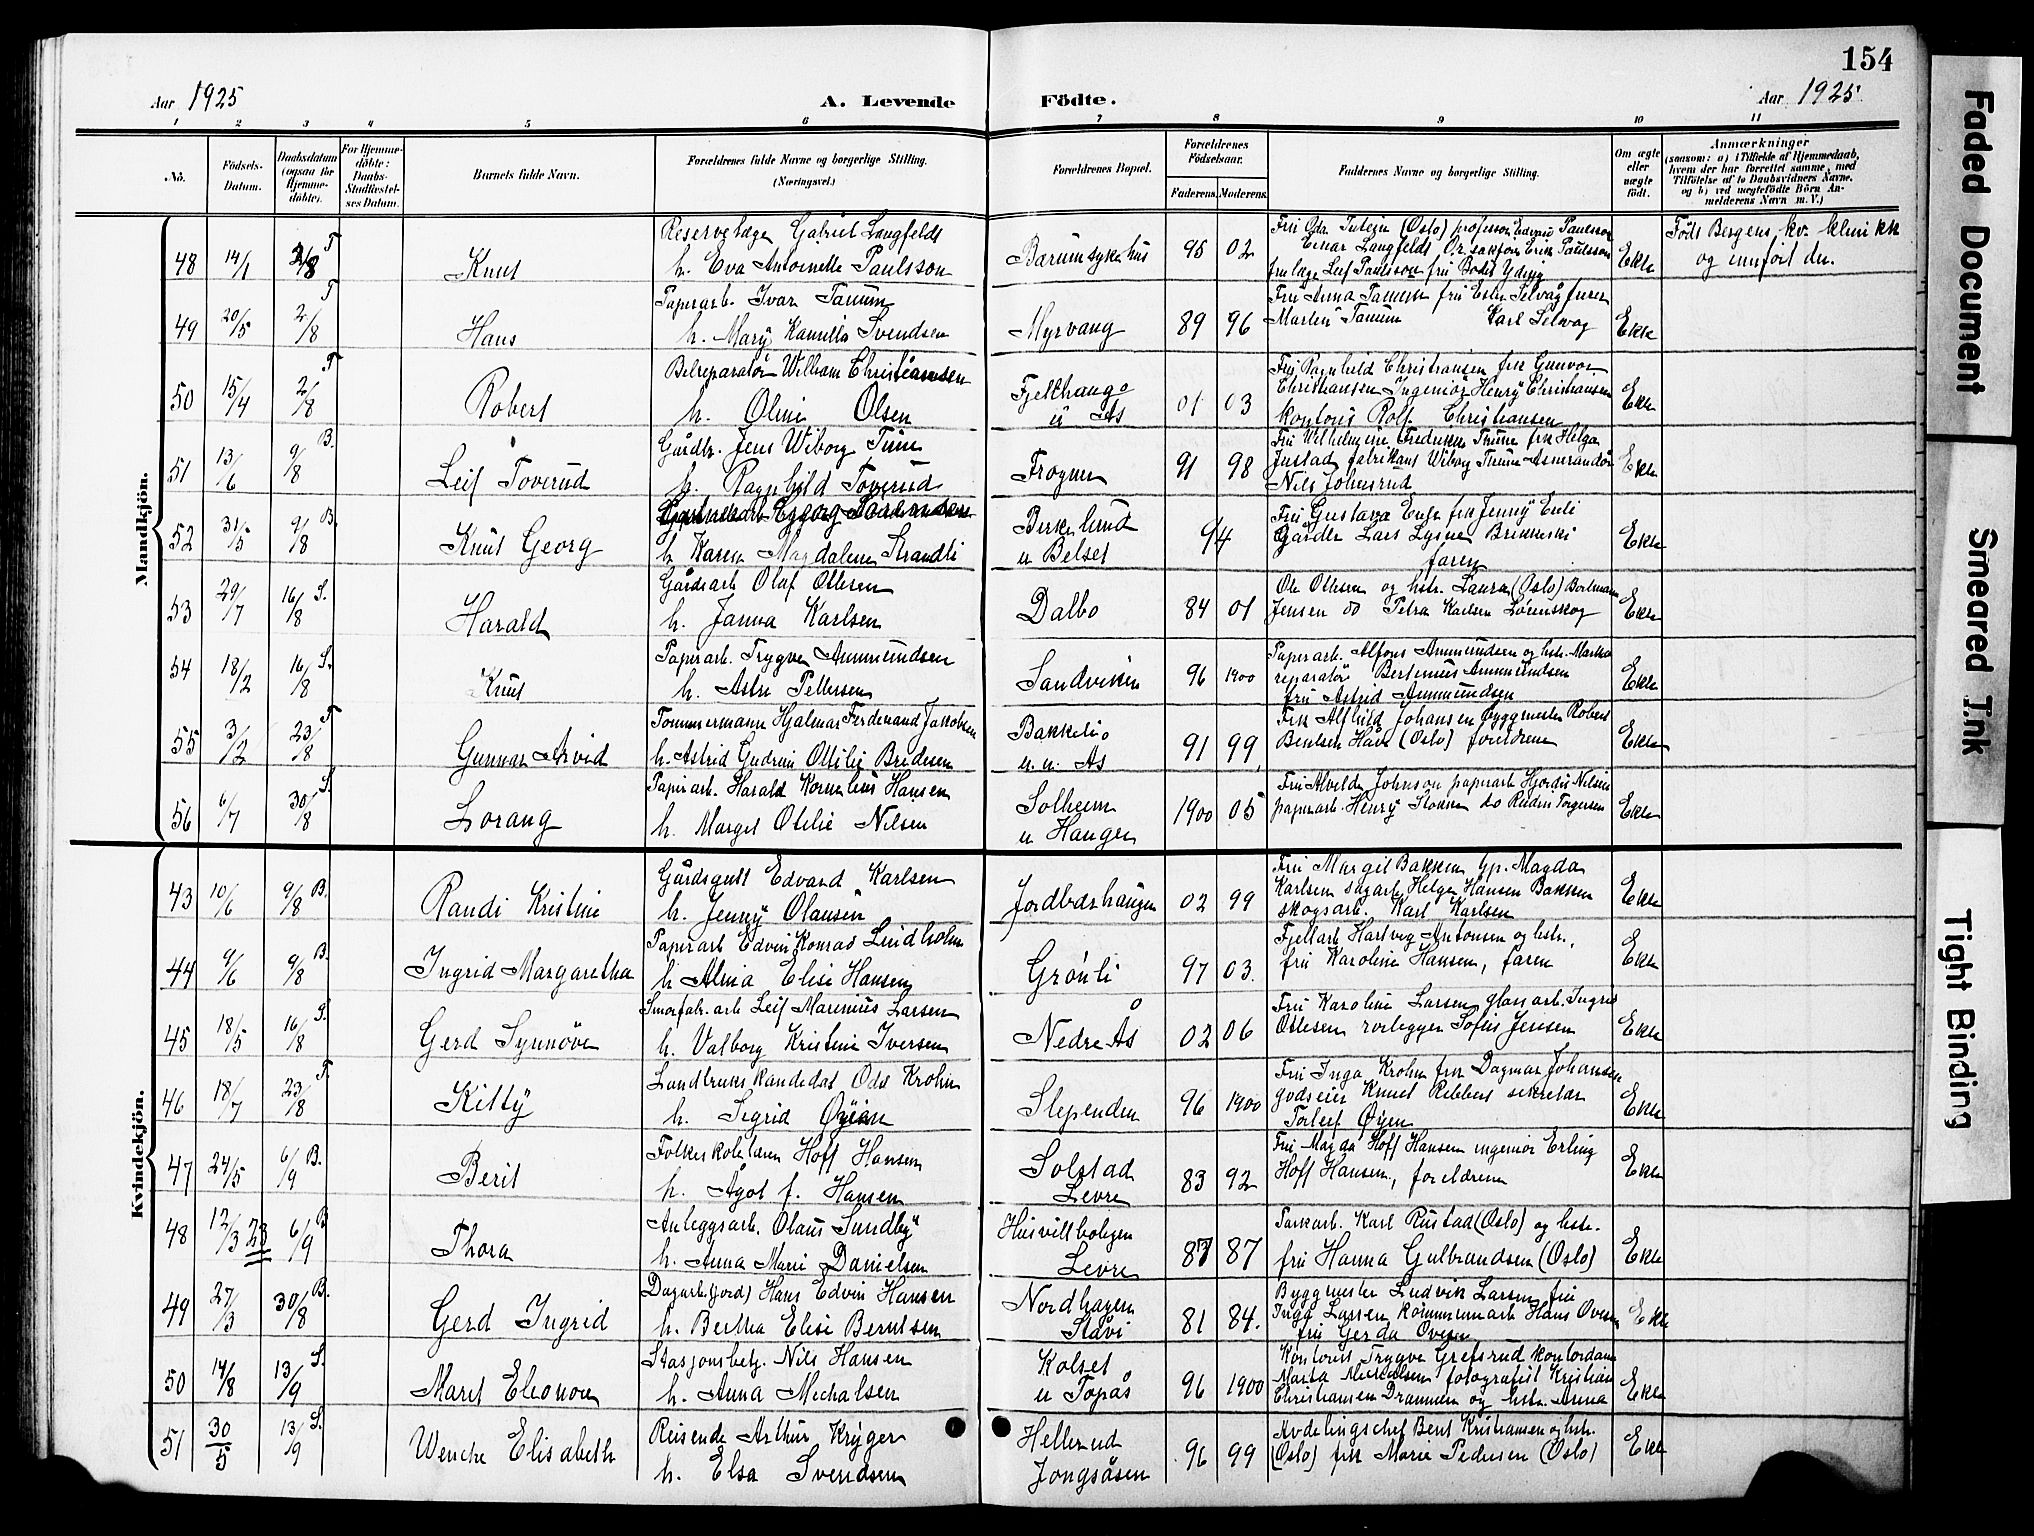 154
Aar 1925 A. Levende Födte. Aar 1925
1 2 3 4 5 6 7 8 9 10 11
No. Födsels-Datum. Daabsdatum (ogsaa for Hjemmedöbte). For Hjemmedöbte: Daabs-Stadfæstelses Datum. Barnets fulde Navn. Forældrenes fulde Navne og borgerlige Stilling. (Næringsvei.) Forældrenes Bopæl. Forældrenes Födselsaar. Faderens. Moderens. Faddernes Navne og borgerlige Stilling. Om ægte eller uægte födt. Anmærkninger (saasom: a) i Tilfælde af Hjemmedaab, hvem der har forrettet samme, med Tilföielse af to Daabsvidners Navne, og b) ved uægtefödte Börn Anmelderens Navn m. V.)
Mandkjön.
48 14/1 2/8 T Knut
Reservelæge Gabriel Langfeldt
h. Eva Antoinette Paulsson
Bærum sykehus 95 02
Einar Langfeldt O.r.sakför Erik Paulsson
Ekte
Född Bergens kv. klinikk
og innfört der.
49 20/5 2/8 T Hans
Papirarb. Ivar Tanum
h. Mary Kamilla Svendsen
Myrvang 89 96
Fru Anna Tanum fru Ester Selvåg
Martin Tanum Karl Selvåg
Ekte
50 15/4 2/8 T Robert
Bilreparatör William Christiansen
h. Oline Olsen
Fjellhaug
u Ås
01 03
Fru Ragnhild Christiansen frk Gunvor
Christiansen Ingeniör Henry Christiansen
kontorist Rolf Christiansen
Ekte
51 13/6 9/8 B. Leif Toverud
Gårdbr. Jens Wiborg Tune
h. Ragnhild Toverud
Frogner 91 98
Fru Wilhelmine Fredrikke Thune frk Helga
Justad fabrikant Wiborg Thune
Nils Johnsrud
Ekte
52 31/5 9/8 B. Knut Georg
h Karen Magdalene Strandli
Birkelund
u Belset
94
Fru Gustava Enge frk Jenny Enli
Gårdbr Lars Lysne
faren
Ekte
53 29/7 16/8 S. Harald
Gårdsarb Olaf Ottesen
h. Janna Karlsen
Dalbo 84 01
Ole Ottesen og hstr. Laura (Oslo)
Jensen do Petra Karlsen Lörenskog
Ekte
54 18/2 16/8 S. Knut
Papirarb. Trygve Ammundsen
h. Astri Pettersen
Sandviken 96 1900
Papirarb. Alfons Ammundsen og hstr.
reparatör Bertinius Ammundsen
fru Astrid Ammundsen
Ekte
55 3/2 23/8 T Gunnar Arvid
Tömmermann Hjalmar Ferdinand Jakobsen
h. Astrid Gudrun Ottilie Bredesen
Bakkeli
u. u. Ås
91 99
Frk Alfhild Johansen byggmester Robert
Bentsen (Oslo) foreldrene
Ekte
56 6/7 30/8 S. Lorang
Papirarb. Harald Kornelius Hansen
h. Margit Otilie Nilsen
Solheim
u Haugen
1900 05
Fru Alvilde Johnson papirarb Hjördis Nilsen
papirarb Henry do Torgersen
Ekte
Kvindekjön.
43 10/6 9/8 B. Randi Kristine
Gårdsgutt Edvard Karlsen
h. Jenny Olausen
Jordbærhaugen 02 99
Fru Margit Bakken tjp. Magda
Karlsen sagarb Helge Hansen Bakken
skogsarb. Karl Karlsen
Ekte
44 9/6 9/8 B. Ingrid Margaretha
Papirarb Edvin Konrad Lindholm
h Alma Elise Hansen
Grönli 97 03.
Fjellarb Hartvig Antonsen og hstr.,
fru Karoline Hansen, faren
Ekte
45 18/5 16/8 S. Gerd Synnöve
Smörfabr. arb Leif Marinius Larsen
h. Valborg Kristine Iversen
Nedre Ås 02 06
Fru Karoline Larsen glassarb. Ingrid
Ottesen rörlegger Sofus Jensen
Ekte
46 18/7 23/8 T. Kitty
Landbrukskandidat Odd Krohn
h. Sigrid Öyen
Slependen 96 1900
Fru Inga Krohn frk Dagmar Johansen
godseier Knut sekretær
Torleif Öyen
Ekte
47 24/5 6/9 B. Berit
Folkeskolelærer Hoff Hansen
h. Ågot f. Hansen
Solstad
Levre
83 92
Fru Magda Hoff Hansen ingeniör Erling
Hoff Hansen, foreldrene
Ekte
48 12/3 23 6/9 B Thora
Anleggsarb. Olaus Sundby
h. Anna Marie Danielsen
Husvillboligen
Levre
87 87
Parkarb. Karl Rustad (Oslo) og hstr.
fru Hanna Gulbrandsen (Oslo)
Ekte
49 27/3 30/8 B. Gerd Ingrid
Dagarb. (jord) Hans Edvin Hansen
h. Bertha Elise Berntsen
Nordhagen
Stavi
81 84.
Byggmester Ludvik Larsen fru
Inga Larsen kommunearb Hans Ovesen
fru Gerda Ovesen
Ekte
50 14/8 13/9 S. Marit Eleonore
Stasjonsbetj. Nils Hansen
h. Anna Michalsen
Kolset
u Topås
96 1900
Kontorist Trygve Grefsrud kontordame
Marta Michalsen fotografist Kristian
Christiansen Drammen og hstr. Anna
Ekte
51 30/5 13/9 S. Wenche Elisabeth
Reisende Arthur Kryger
h. Elsa Svendsen
Hellerud
Jongsåsen
96 99
Avdelingschef Bent Kristiansen og hstr.
(Oslo) frk Marie Pedersen (Oslo)
Ekte
Faded Document
Smeared Ink
Tight Binding